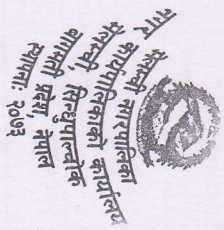 मेलम्ची नगरपालिका
नगर कार्यपालिकाको कार्यालय
मेलम्ची, सिन्धुपाल्चोक
बागमती प्रदेश, नेपाल
स्थापना: २०७३